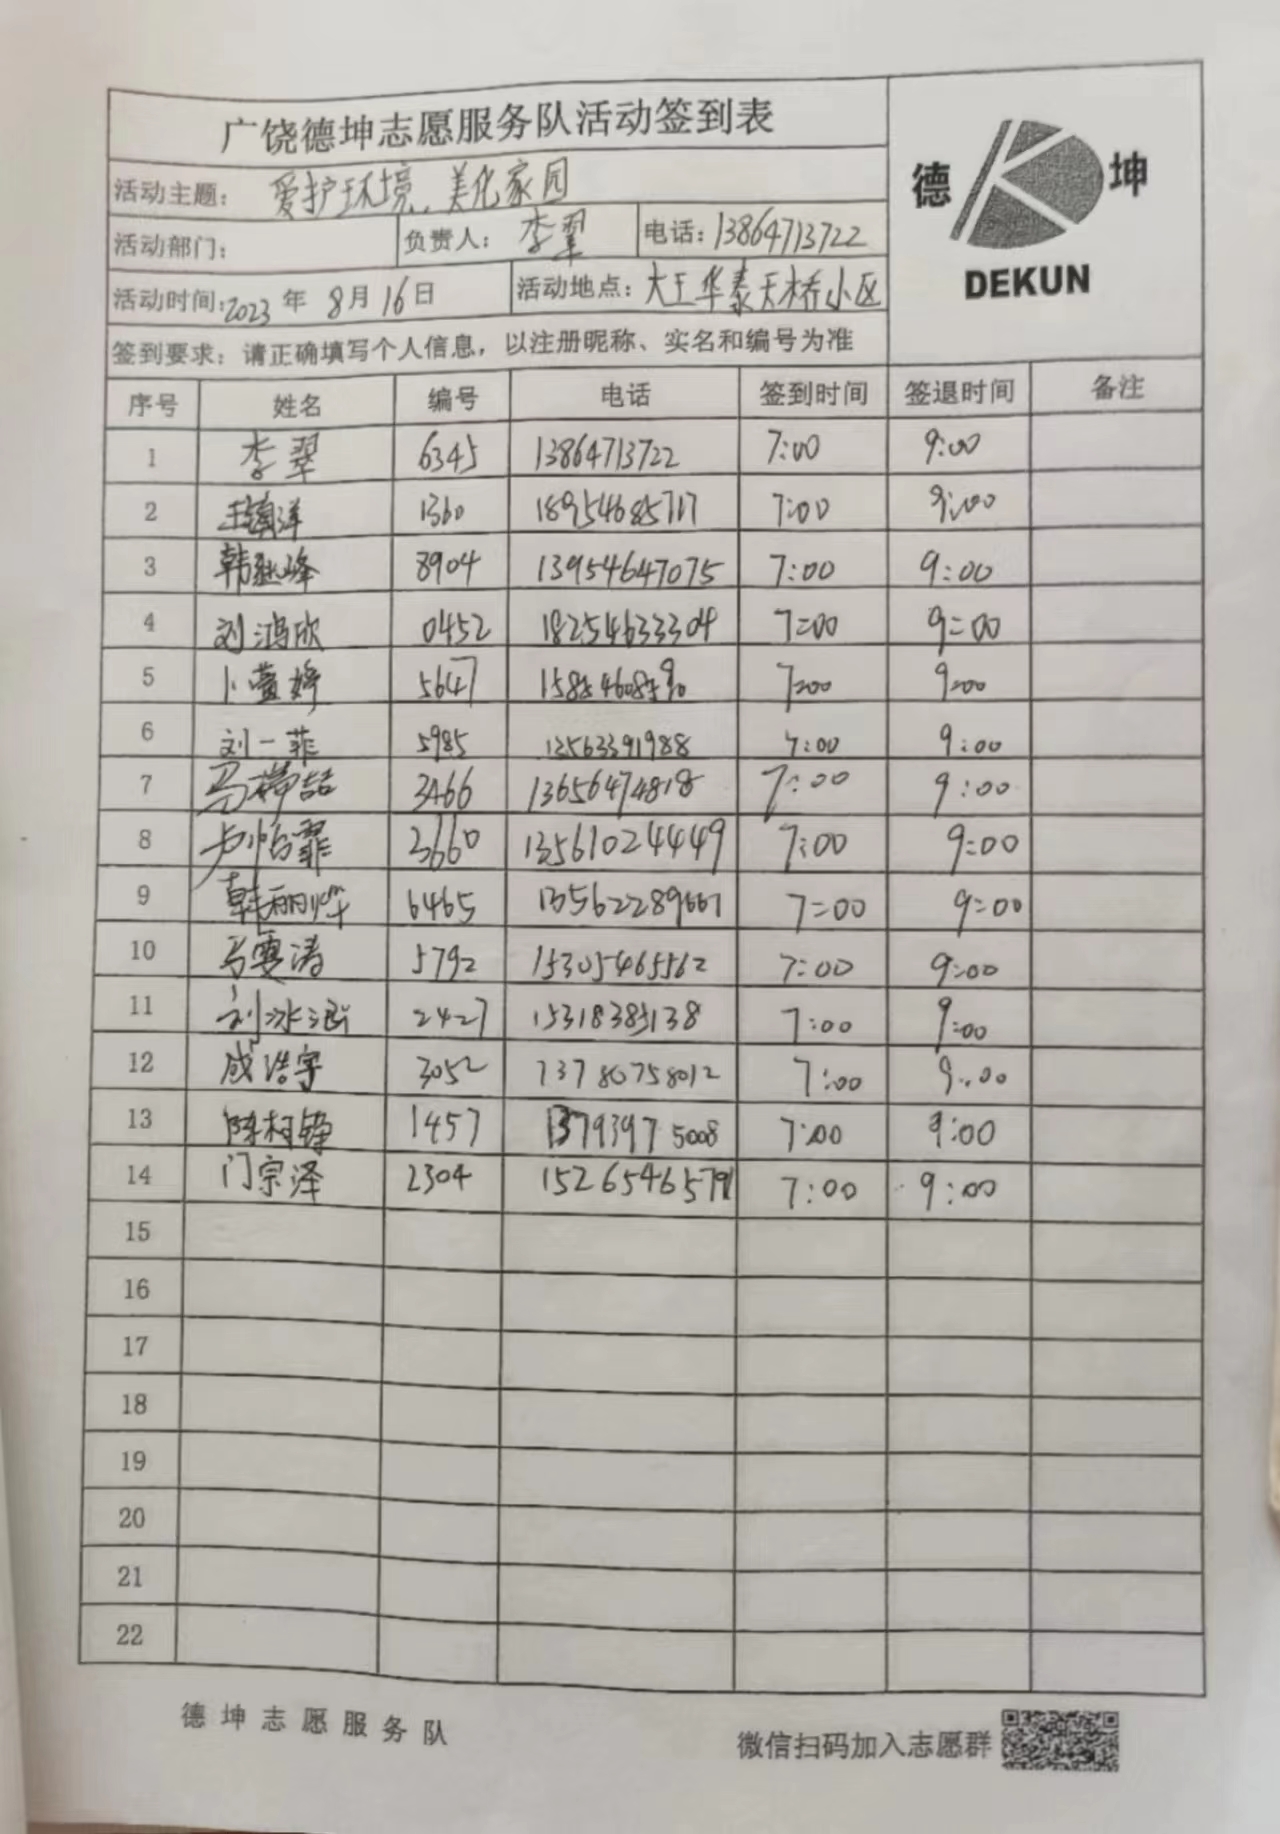 广饶德坤志愿服务队活动签到表
德 坤
DEKUN
活动主题: 爱护环境,美化家园
活动部门: 负责人: 李翠 电话: 13864713722
活动时间: 2023 年 8 月 16 日 活动地点: 大王华泰天桥小区
签到要求: 请正确填写个人信息, 以注册昵称、实名和编号为准
序号 姓名 编号 电话 签到时间 签退时间 备注
1 李翠 6345 13864713722 7:00 9:00
2 1360 18954685717 7:00 9:00
3 韩继峰 8904 13954647075 7:00 9:00
4 刘鸿欣 0452 18254633304 7:00 9:00
5 卜萱婷 5647 7:00 9:00
6 刘一菲 5985 12563391988 7:00 9:00
7 3466 13656474818 7:00 9:00
8 卢怡霏 3660 13561024449 7:00 9:00
9 韩丽烨 6465 7:00 9:00
10 马雯涛 5792 15305465562 7:00 9:00
11 2427 15318385138 7:00 9:00
12 成浩宇 3052 13780758012 7:00 9:00
13 陈柯锋 1457 13793975008 7:00 9:00
14 门宗泽 2304 15265465791 7:00 9:00
15
16
17
18
19
20
21
22
德坤志愿服务队
微信扫码加入志愿群